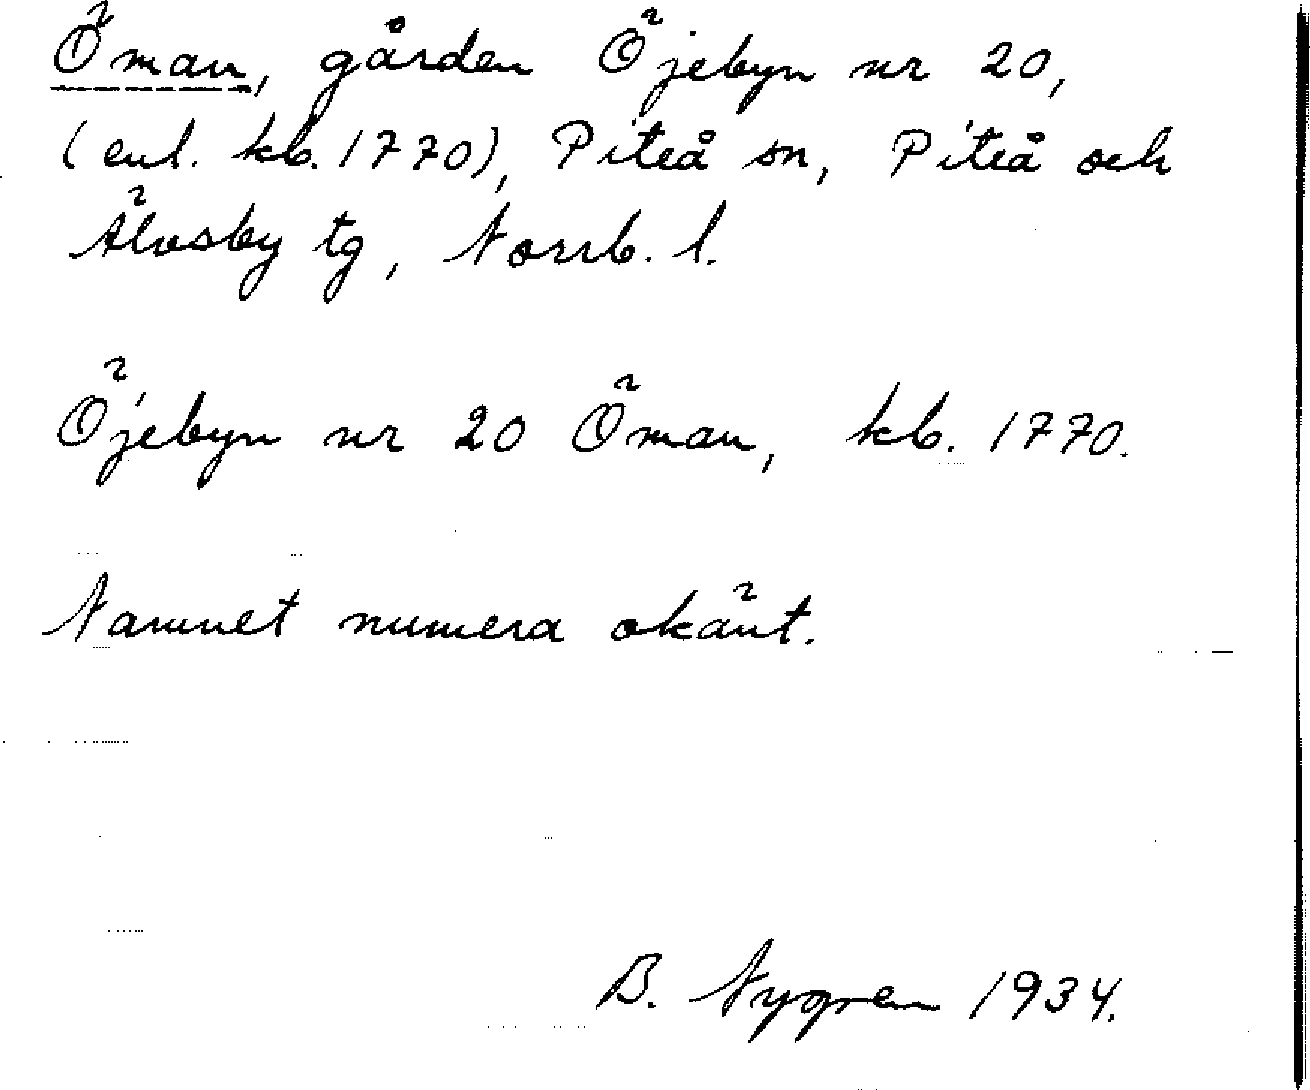 Öman, gården Öjebyn nr 20,
(enl. kb. 1770), Piteå sn, Piteå och
Älvsby tg, Norrb. l.
Öjebyn nr 20 Öman, kb. 1770.
Namnet numera okänt.
B. Nygren 1934.